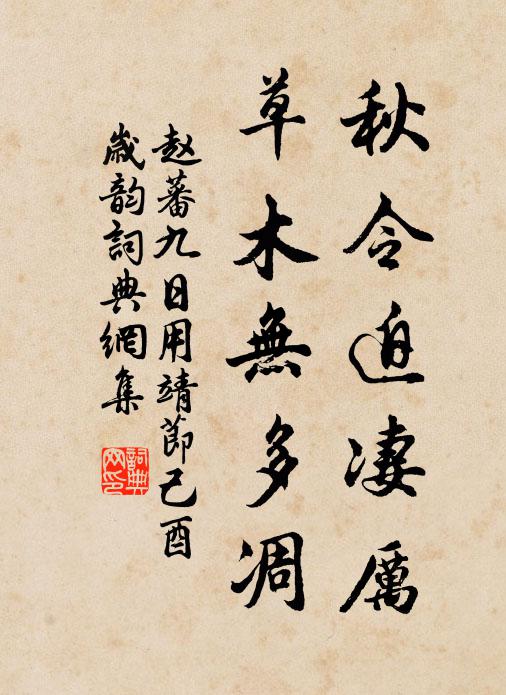 秋令迫凄厲
草木無多凋
赵蕃九日用靖節己酉
歲韵詞典網集
詞典网印